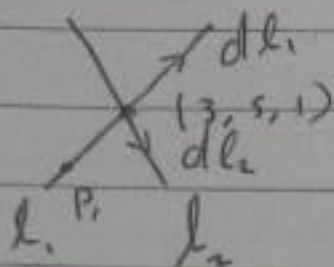 dl₁
(3, 5, 1)
dl₂
P₁
l₁ l₂